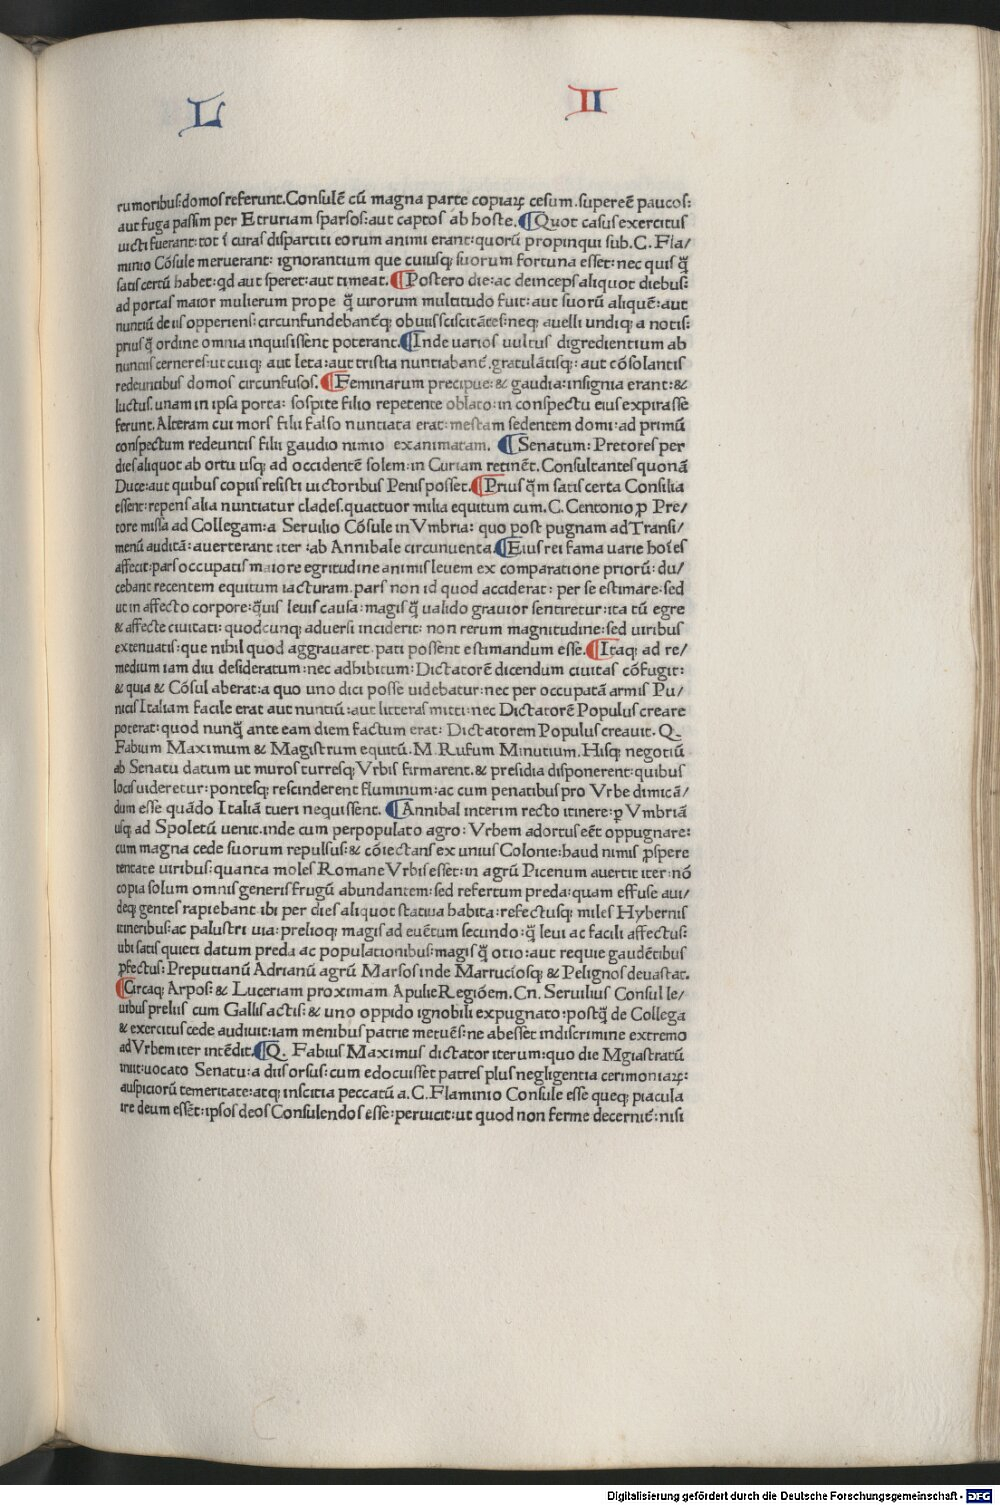 L II
rumoribus:domos referunt.Consulē cū magna parte copiaꝝ cesum.superēe paucos:
aut fuga passim per Etruriam sparsos:aut captos ab hoste.¶Quot casus exercitus
uicti fuerant:tot ī curas dispartiti eorum animi erant:quorū propinqui sub.C.Fla/
minio Cōsule meruerant: ignorantium que cuiusqꝫ suorum fortuna esset:nec quis q̄
satis certū habet:qd aut speret:aut timeat.¶Postero die:ac deinceps aliquot diebus:
ad portas maior mulierum prope q̄ uirorum multitudo fuit:aut suorū aliquē:aut
nuntiū de iis opperiens:circunfundebant̄qꝫ obuiis sciscitātes:neqꝫ auelli undiqꝫ a notis:
priusq̄ ordine omnia inquisissent poterant.¶Inde uarios uultus digredientium ab
nuntiis cerneres:ut cuiqꝫ aut leta:aut tristia nuntiabant̄.gratulātisqꝫ:aut cōsolantis
redeuntibus domos circunfusos.¶Feminarum precipue:& gaudia:insignia erant:&
luctus.unam in ipsa porta: sospite filio repetente oblato:in conspectu eius expirasse
ferunt.Alteram cui mors filii falso nuntiata erat:mestam sedentem domi:ad primū
conspectum redeuntis filii gaudio nimio exanimatam. ¶Senatum:Pretores per
dies aliquot ab ortu usqꝫ ad occidentē solem:in Curiam retinēt.Consultantes quonā
Duce:aut quibus copiis resisti uictoribus Penis posset.¶Priusq̄m satis certa Consilia
essent:repens alia nuntiatur clades.quattuor milia equitum cum.C.Centonio ꝓ Pre/
tore missa ad Collegam:a Seruilio Cōsule in Vmbria: quo post pugnam ad Transi/
menū auditā:auerterant iter :ab Annibale circunuenta.¶Eius rei fama uarie hoīes
affecit:pars occupatis maiore egritudine animis leuem ex comparatione priorū:du/
cebant recentem equitum iacturam.pars non id quod acciderat: per se estimare.sed
ut in affecto corpore:q̄uis leuis causa:magis q̄ ualido grauior sentiretur:ita tū egre
& affecte ciuitati: quodcunqꝫ aduersi inciderit: non rerum magnitudine:sed uiribus
extenuatis:que nihil quod aggrauaret.pati possent estimandum esse.¶Itaqꝫ ad re/
medium iam diu desideratum:nec adhibitum:Dictatorē dicendum ciuitas cōfugit:
& quia & Cōsul aberat:a quo uno dici posse uidebatur:nec per occupatā armis Pu/
nicis Italiam facile erat aut nuntiū:aut litteras mitti:nec Dictatorē Populus creare
poterat:quod nunq̄ ante eam diem factum erat: Dictatorem Populus creauit.Q.
Fabium Maximum & Magistrum equitū.M.Rufum Minutium.Hisqꝫ negotiū
ab Senatu datum ut muros turresqꝫ Vrbis firmarent.& presidia disponerent:quibus
locis uideretur:pontesqꝫ rescinderent fluminum:ac cum penatibus pro Vrbe dimicā/
dum esse quādo Italiā tueri nequissent. ¶Annibal interim recto itinere:ꝑ Vmbriā
usqꝫ ad Spoletū uenit.inde cum perpopulato agro: Vrbem adortus eēt oppugnare:
cum magna cede suorum repulsus:& cōiectans ex unius Colonie:haud nimis ꝓspere
tentate uiribus:quanta moles Romane Vrbis esset:in agrū Picenum auertit iter:nō
copia solum omnis generis frugū abundantem:sed refertum preda:quam effuse aui/
deqꝫ gentes rapiebant.ibi per dies aliquot statiua habita:refectusqꝫ miles Hybernis
itineribus:ac palustri uia:prelioqꝫ magis ad euētum secundo:q̄ leui ac facili affectus:
ubi satis quieti datum preda ac populationibus:magis q̄ otio:aut requie gaudētibus
ꝓfectus:Preputianū Adrianū agrū Marsos inde Marruciosqꝫ & Pelignos deuastat.
¶Circaqꝫ Arpos:& Luceriam proximam Apulie Regiōem.Cn.Seruilius Consul le/
uibus preliis cum Gallis actis:& uno oppido ignobili expugnato:postq̄ de Collega
& exercitus cede audiuit:iam menibus patrie metuēs:ne abesset indiscrimine extremo
ad Vrbem iter intēdit.¶Q. Fabius Maximus dictator iterum:quo die Mgiastratū
iniit:uocato Senatu:a diis orsus:cum edocuisset patres plus negligentia cerimoniaꝝ:
auspiciorū temeritate:atqꝫ inscitia peccatū a.C.Flaminio Consule esse queqꝫ piacula
ire deum essēt:ipsos deos Consulendos esse:peruicit:ut quod non ferme decernit̄:nisi
Digitalisierung gefördert durch die Deutsche Forschungsgemeinschaft - DFG